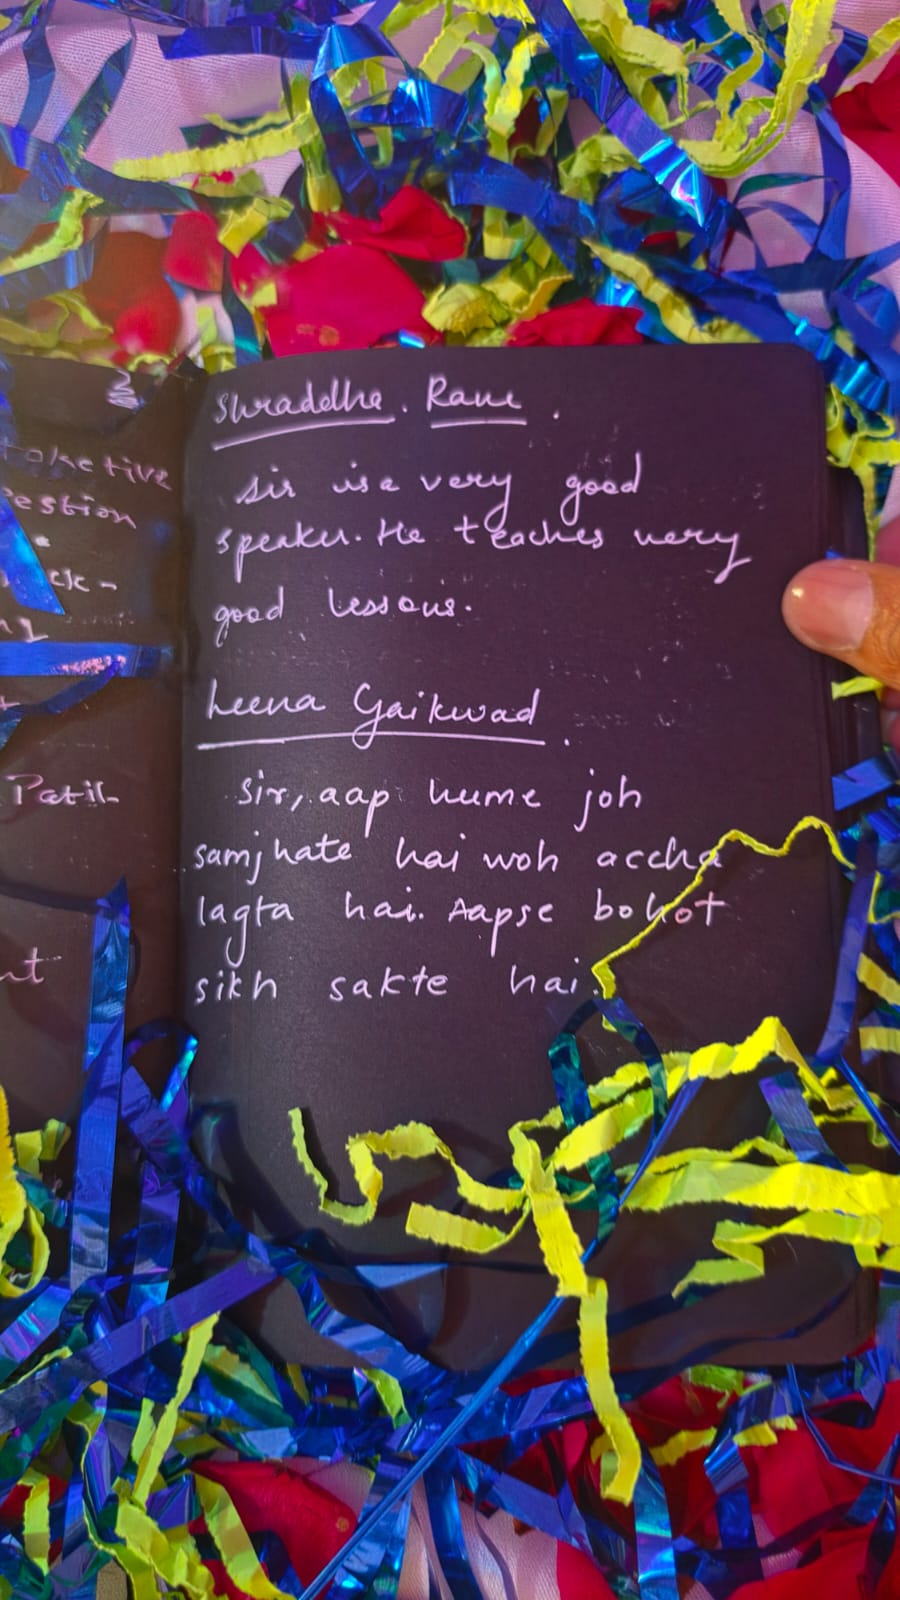 okective
estion
ck-
Patil-
nt
Shraddha. Rane.
sir is a very good
speaker. He teaches very
good lessons.
Leena Gaikwad.
Sir, aap hume joh
samjhate hai woh accha
lagta hai. Aapse bohot
sikh sakte hai.